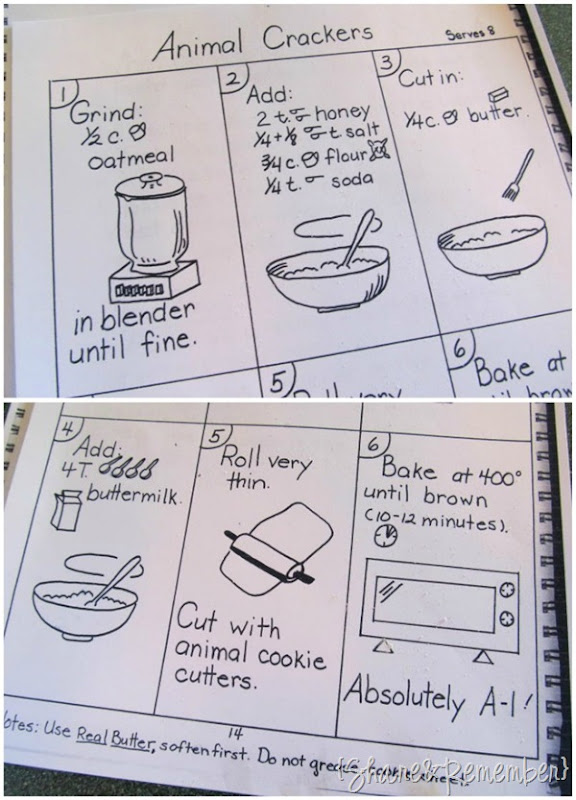 Animal Crackers
Serves 8
1
Grind:
½ c.
oatmeal
in blender
until fine.
2
Add:
2 t. honey
¼ + ⅛ t. salt
¾ c. flour
¼ t. soda
3
Cut in:
¼ c. butter.
5
6
Bake at
4
Add:
4 T.
buttermilk.
5
Roll very
thin.
Cut with
animal cookie
cutters.
6
Bake at 400°
until brown
(10-12 minutes).
Absolutely A-1!
14
Notes: Use Real Butter, soften first. Do not grease
{Share & Remember}